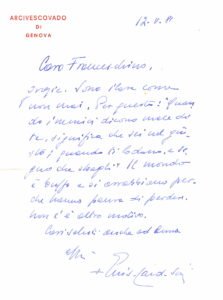 ARCIVESCOVADO
DI
GENOVA
12. V. 81
Caro Franceschino,
grazie. Sono ilare come
non mai. Per questo: Quan
do i nemici dicono male di
te, significa che sei nel giu
sto; quando ti lodano, è se
gno che sbagli. Il mondo
è buffo e si arrabbiano per
che hanno paura di perdere.
non c'è altro motivo.
anche ad Anna
+